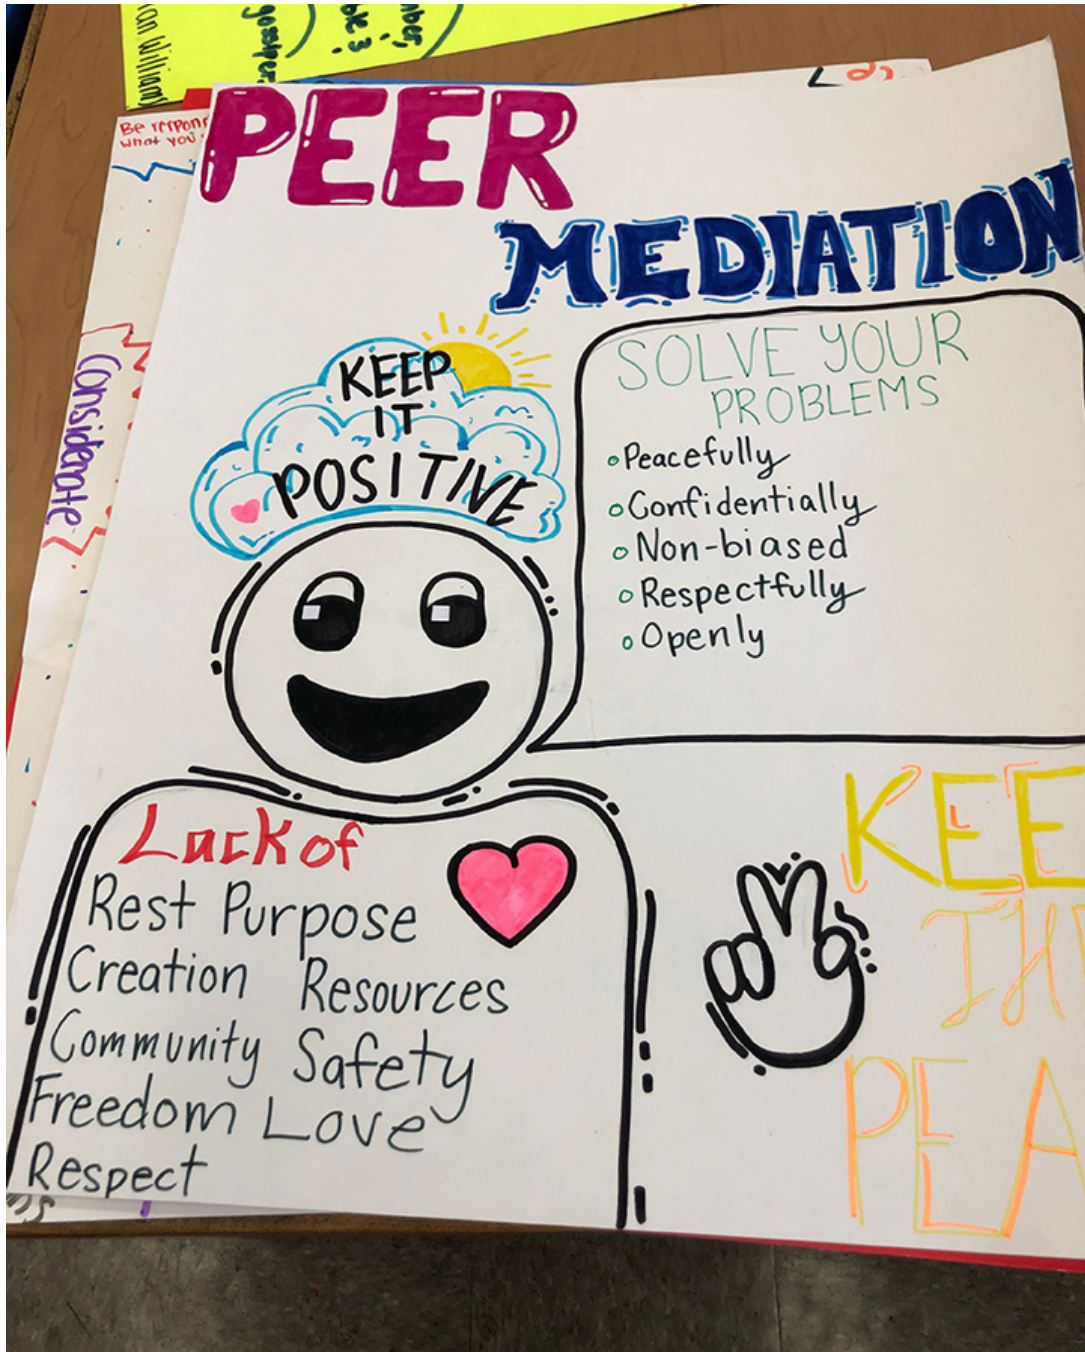 an Williams
gossiper
PEER
MEDIATION
Be
what you
Considerate
KEEP
IT
POSITIVE
SOLVE YOUR
PROBLEMS
Peacefully
Confidentially
Non-biased
Respectfully
Openly
Lack of
Rest Purpose
Creation Resources
Community Safety
Freedom Love
Respect
KEE
TH
PEA